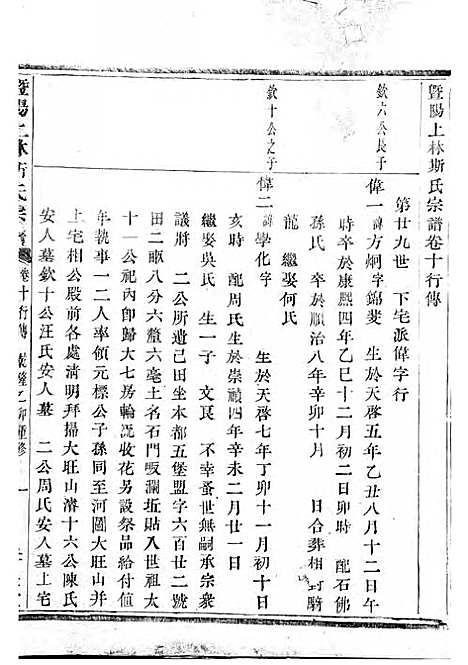 暨陽上林斯氏宗譜卷十行傳
第廿九世　下宅派偉字行
欽六公長子
偉一諱方炯字錦斐　生於天啓五年乙丑八月十二日午
時卒於康熙四年乙巳十二月初二日卯時　配石佛
孫氏　卒於順治八年辛卯十月　日合葬相對騎
龍　繼娶何氏
欽十公之子
偉二諱學化字　生於天啓七年丁卯十一月初十日
亥時　配周氏生於崇禎四年辛未二月廿一日
繼娶吳氏　生一子　文艮　不幸蚤世無嗣承宗衆
議將　二公所遺己田坐本都五堡盟字六百廿二號
田二畝八分六釐六毫土名石門畈瀾坵貼入世祖太
十一公祀內卽歸大七房輪流收花另設祭品給付値
年執事一二人率領元標公子孫同至河圖大旺山并
上宅相公殿前各處淸明拜掃大旺山濬十六公陳氏
安人墓欽十公汪氏安人墓　二公周氏安人墓上宅
暨陽上林斯氏宗譜　卷十行傳